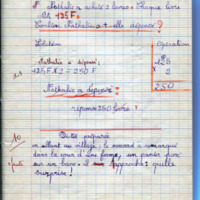 Nathalie a acheté 2 livres. Chaque livre
125F.
Combien Nathalie a-t-elle dépensé ?
Solution
Opération
Nathalie a dépensé :
125F x 2 = 250F
125
x 2
250
Nathalie a dépensé
réponse 250 livre
10
Dictée préparée
en allant au village, le renard a remarqué
dans la cour d'une ferme, un panier posé
sur un banc : il approche : quelle
surprise !